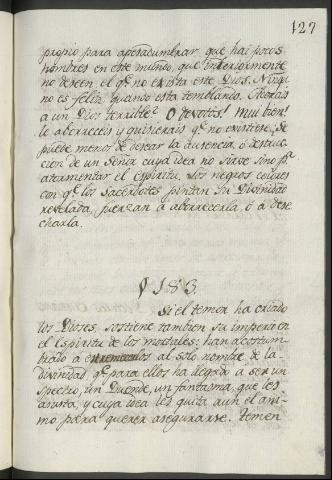 127
propio, para apesadumbrar, que hai pocos
hombres en este mundo, que interiormente
no deseen, el qe. no exista este Dios. Ningu
no es feliz, quando esta temblando.
a un Dios terrible? O devotos! Mui bien!
le aborreceis y quisierais qe. no existiese. Se
puede menos de desear la ausencia, o destruc
cion de un Señor cuya idea no sirve sino pa.
atormentar el espiritu. Los negros colores
con qe. los sacerdotes pintan su Divinidad
revelada, fuerzan a aborrecerla, o a dese
charla.
183
Si el temor ha criado
los Dioses, sostiene tambien su imperio en
el Espiritu de los mortales: han acostum
brado a estremecerlos al solo nombre de la
divinidad, qe. para ellos ha llegado a ser un
Spectro, un Duende, un fantasma, que les
asusta, y cuya idea les quita aun el ani
mo para querer asegurarse. Temen